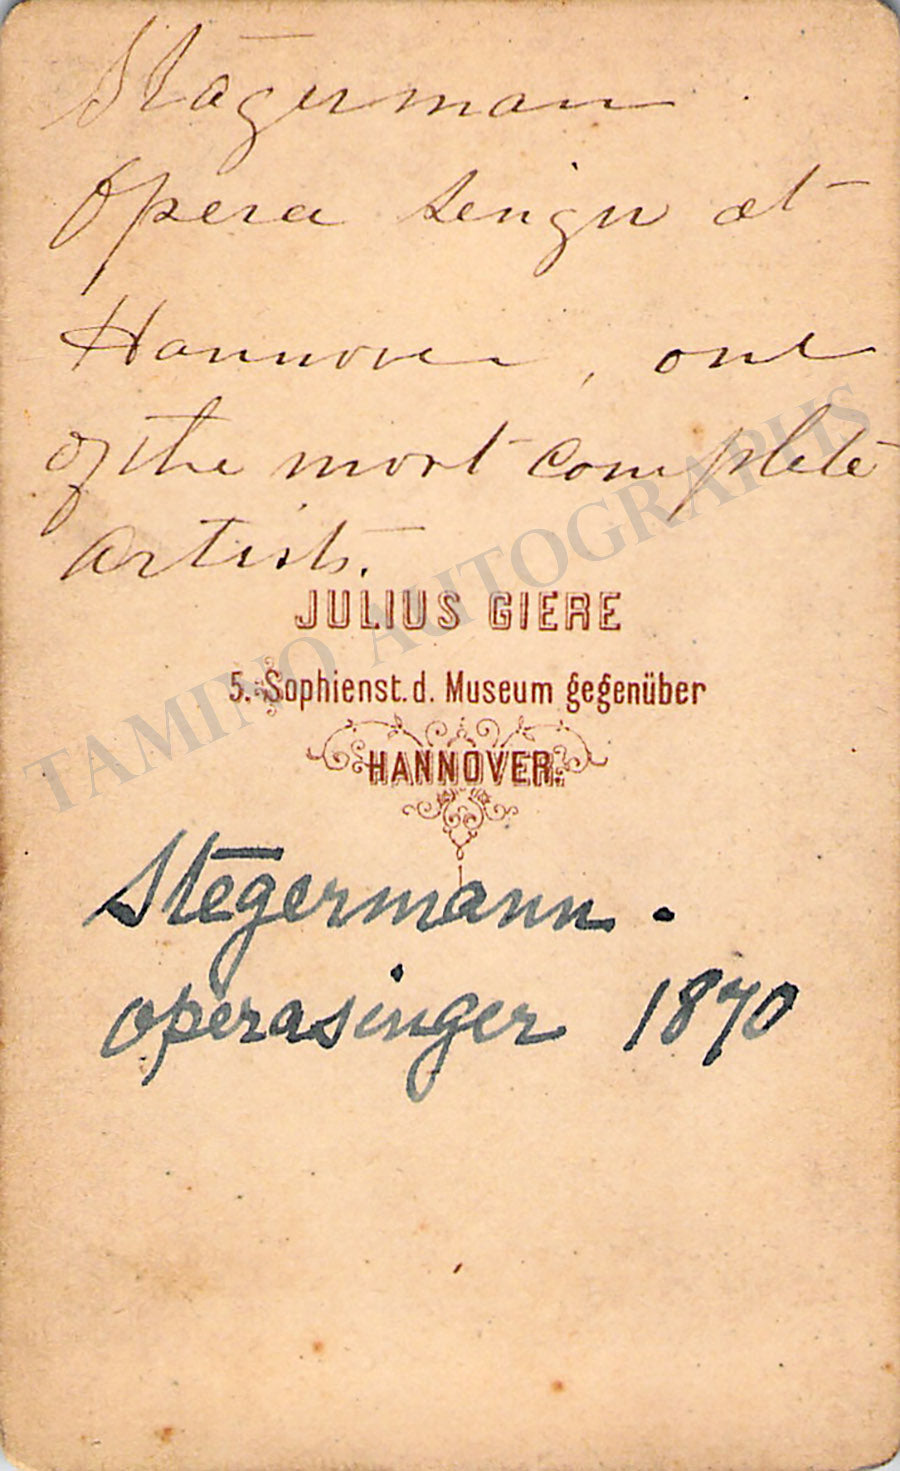 Stägerman
Opera senger at
Hannover, one
of the most complete
artists.
JULIUS GIERE
5. Sophienst. d. Museum gegenüber
HANNOVER.
Stegermann.
operasinger 1870
TAMINO AUTOGRAPHS